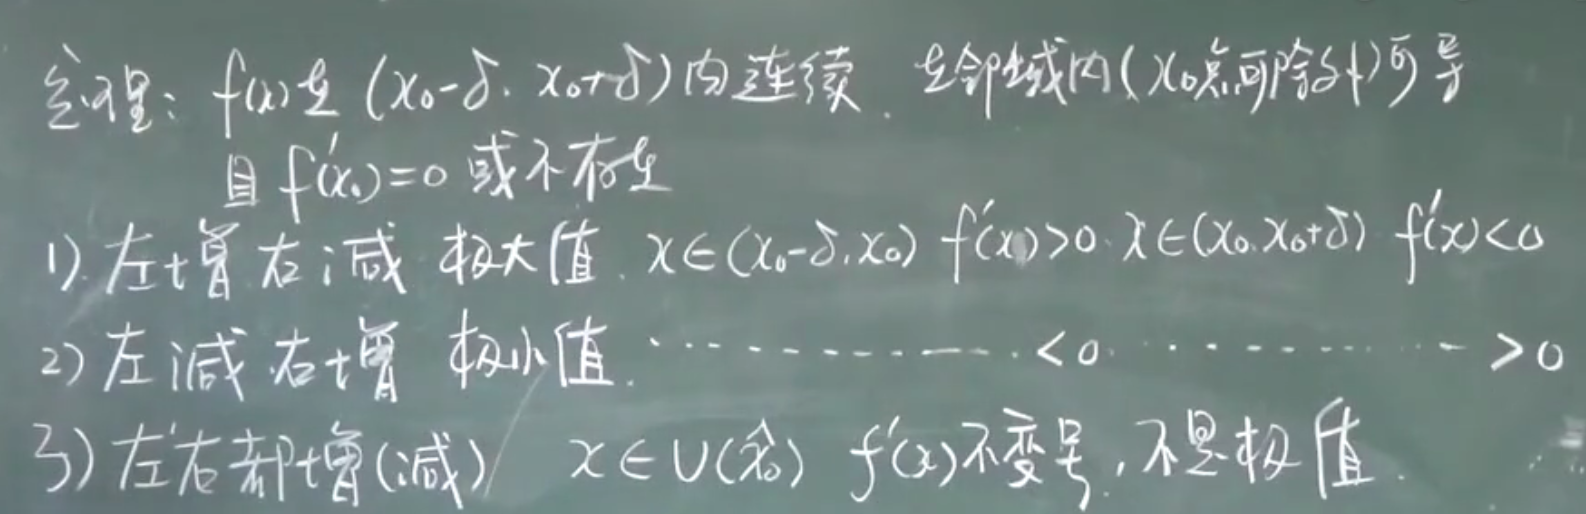 定理: f(x)在 (x₀-δ, x₀+δ)内连续. 在邻域内(x₀点可除外)可导
且 f'(x₀)=0 或不存在
1). 左增右减 极大值. x∈(x₀-δ,x₀) f'(x)>0. x∈(x₀,x₀+δ) f'(x)<0
2) 左减右增 极小值. ............ <0. ............ >0
3) 左右都增(减) x∈U(x̂₀) f'(x)不变号, 不是极值.